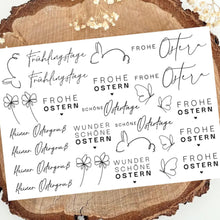 Frühlingstage
FROHE
Ostern
Frühlingstage
FROHE
OSTERN
FROHE
Ostern
SCHÖNE Ostertage
FROHE
OSTERN
Kleiner Ostergruß
WUNDER
SCHÖNE
OSTERN
SCHÖNE Ostertage
Kleiner Ostergruß
FROHE
OSTERN
Kleiner Ostergruß
WUNDER
SCHÖNE
OSTERN
Kleiner Ostergruß